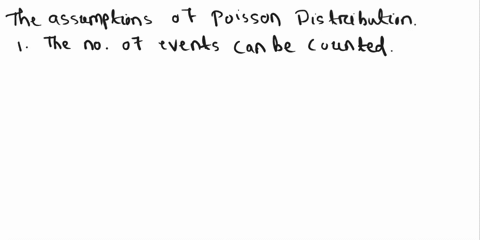 The assumptions of Poisson Distribution.
1. The no. of events can be counted.